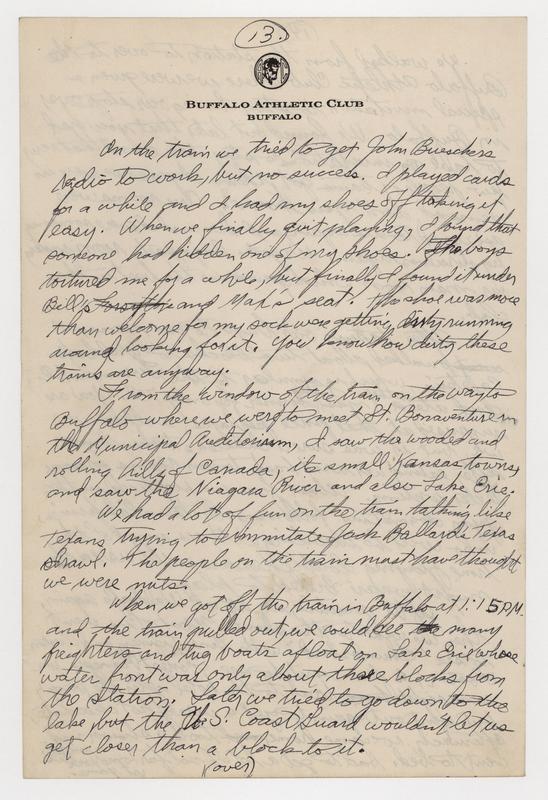 13.
BUFFALO ATHLETIC CLUB
BUFFALO
On the train we tried to get John Buescher's
radio to work, but no success. I played cards
for a while and I had my shoes off taking it
easy. When we finally quit playing, I found that
someone had hidden one of my shoes. The boys
tortured me for a while, but finally I found it under
Bill's and Max's seat. The shoe was more
than welcome for my sock were getting dirty running
around looking for it. You know how dirty these
trains are anyway.
From the window of the train on the way to
Buffalo where we were to meet St. Bonaventure in
the Municipal Auditorium, I saw the wooded and
rolling hills of Canada, its small Kansas towns,
and saw the Niagara River and also Lake Erie.
We had a lot of fun on the train talking like
Texans trying to immitate Jack Ballard's Texas
drawl. The people on the train must have thought
we were nuts.
When we got off the train in Buffalo at 1:15 P.M.
and the train pulled out, we could see many
freighters and tug boats afloat on Lake Erie whose
water front was only about three blocks from
the station. Later we tried to go down to the
lake, but the U.S. Coast Guard wouldn't let us
get closer than a block to it.
(over)